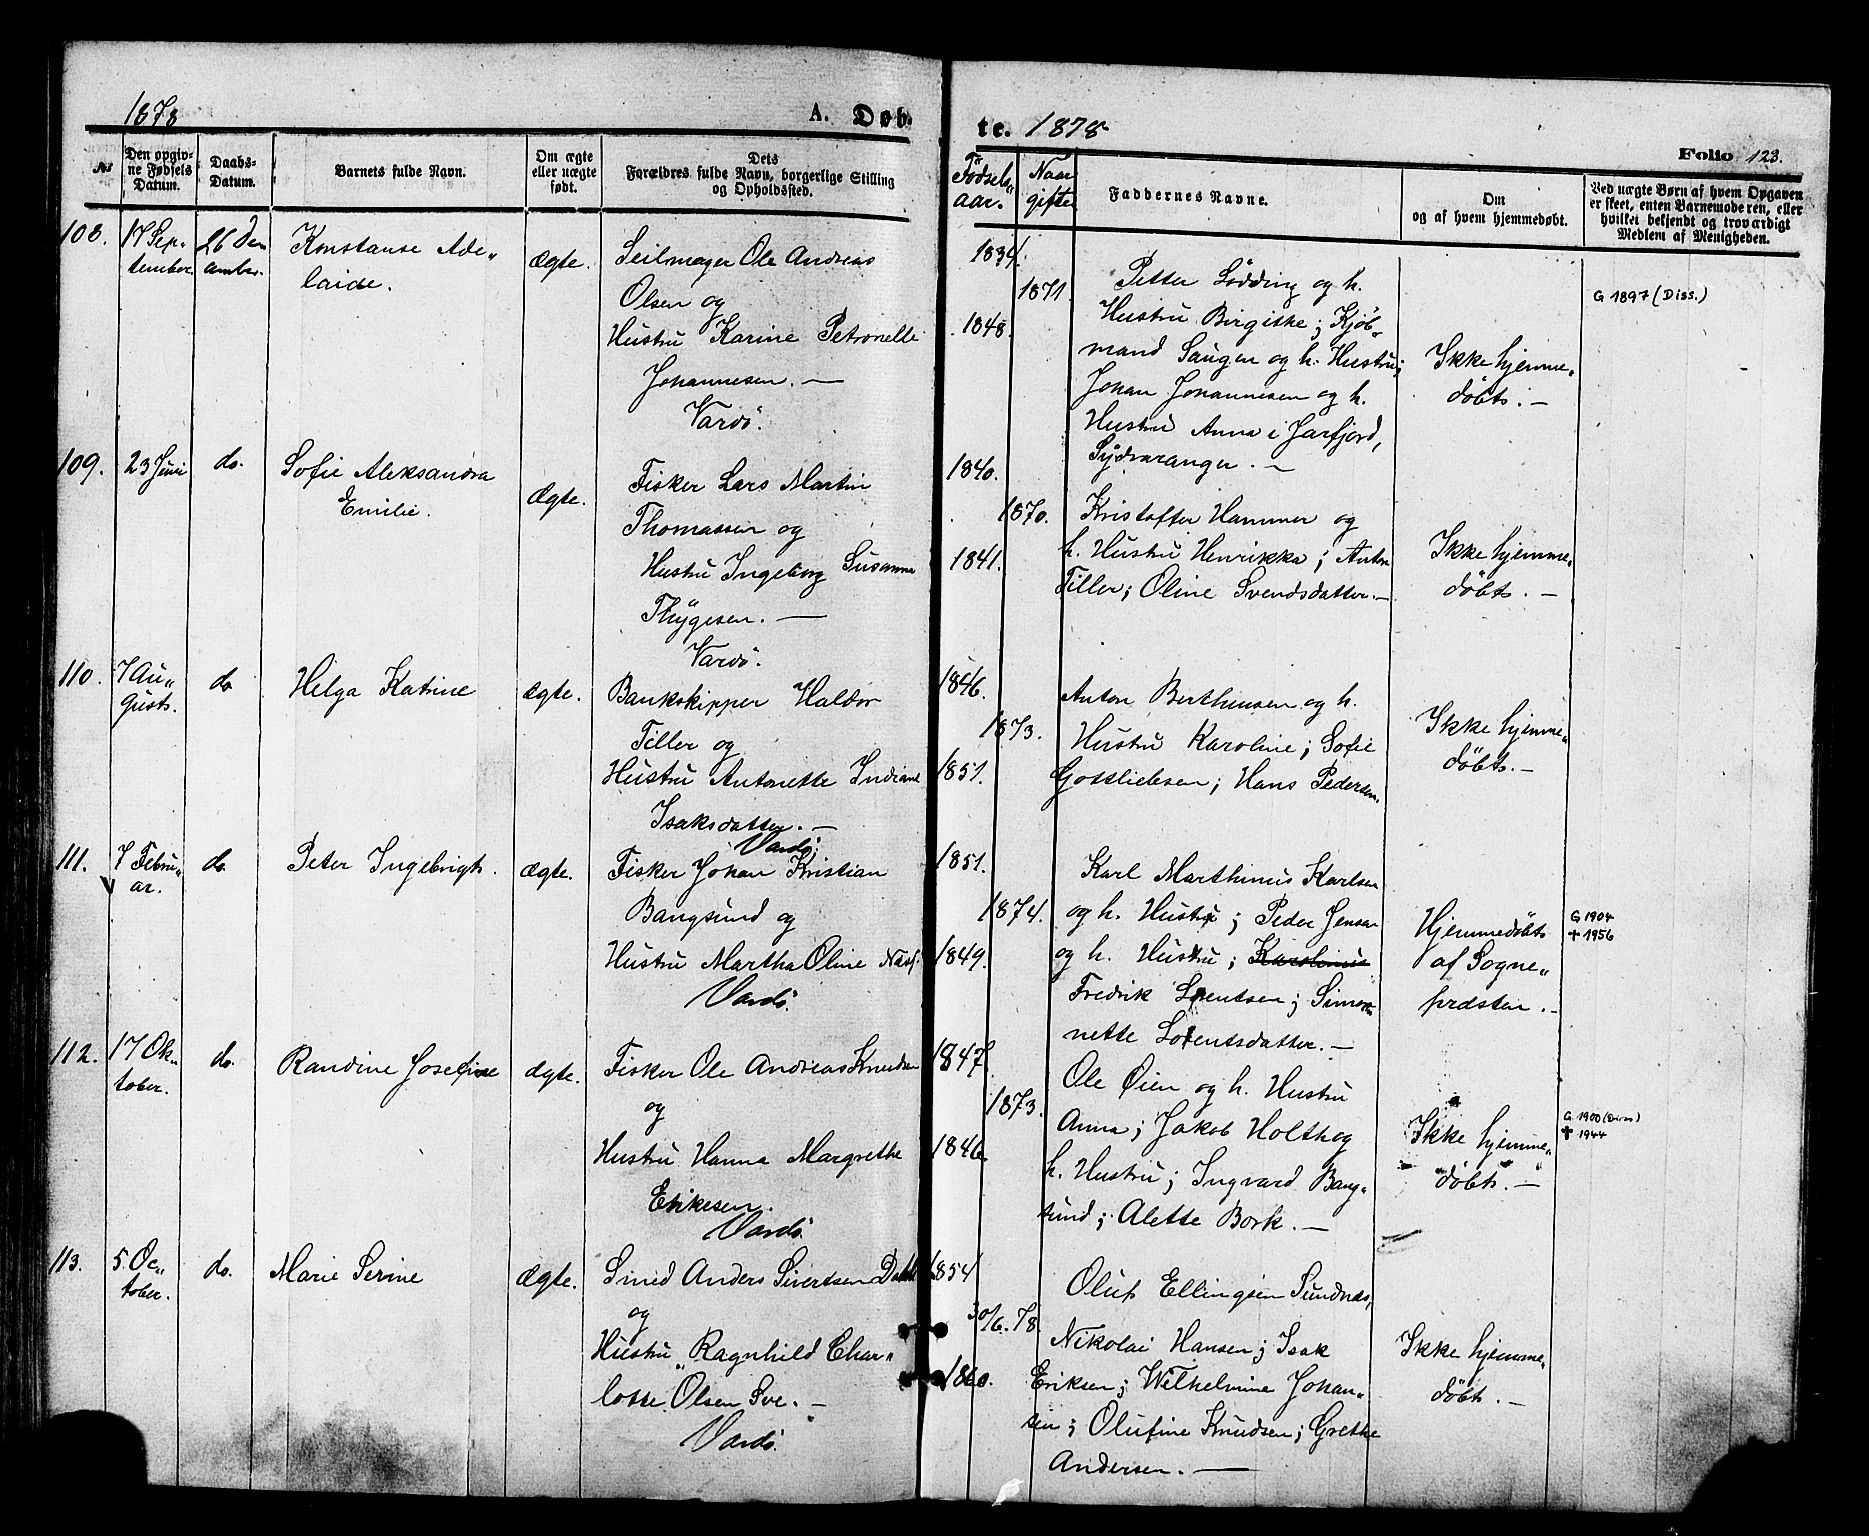 1878
A. Døb-
№
Den opgiv-
ne Fødsels
Datum.
Daabs-
Datum.
Barnets fulde Navn.
Om ægte
eller uægte
født.
Dets
Forældres fulde Navn, borgerlige Stilling
og Opholdssted.
te. 1878
Folio 123.
Fødsels-
aar.
Naar
gifte
Faddernes Navne.
Om
og af hvem hjemmedøbt.
Ved uægte Børn af hvem Opgaven
er skeet, enten Barnemoderen, eller
hvilket bekjendt og troværdigt
Medlem af Menigheden.
108.
17 Sep-
tember.
26 De
cember.
Konstanse Ade-
laide.
Ægte.
Seilmager Ole Andreas
Olsen og
Hustru Karine Petronelle
Johannesen. —
Vardø.
1834.
1871
1848.
Petter Lødding og h.
Hustru Birgitte; Kjøb-
mand Saugen og h. Hustru;
Johan Johannesen og h.
Hustru Anna i Jarfjord,
Sydvaranger. —
Ikke hjemme-
døbt. —
G 1897 (Diss.)
109.
23 Juni
do.
Sofie Aleksandra
Emilie.
Ægte.
Fisker Lars Martin
Thomassen og
Hustru Ingeborg Susanna
Thygesen. —
Vardø.
1840.
1870.
1841.
Kristoffer Hammer og
h. Hustru Henrikka; Anton
Tiller; Oline Svendsdatter. —
Ikke hjemme-
døbt. —
110.
7 Au-
gust.
do
Helga Katrine
Ægte.
Bankskipper Haldor
Tiller og
Hustru Antonette Indiane
Isaksdatter. —
Vardø.
1846.
1873.
1851.
Anton Berthinsen og h.
Hustru Karoline; Sofie
Gottliebsen; Hans Pedersen.
Ikke hjemme-
døbt. —
111.
7 Febru-
ar.
do.
Peter Ingebrigt.
Ægte.
Fisker Johan Kristian
Bangsund og
Hustru Martha Oline Næss.
Vardø.
1851.
1874.
1849.
Karl Marthinus Karlsen
og h. Hustru; Peder Jensen
og h. Hustru; Karolinus
Fredrik Lorentsen; Simo-
nette Lorentsdatter. —
Hjemmedøbt
af Sogne-
præsten. —
G 1904
✝ 1956
112.
17 Ok-
tober.
do.
Randine Josefine
Ægte.
Fisker Ole Andreas Knudsen
og
Hustru Hanna Margrethe
Eriksen.
Vardø.
1847.
1873.
1846.
Ole Øien og h. Hustru
Anna; Jakob Holth og
h. Hustru; Ingvard Bang-
sund; Alette Bork. —
Ikke hjemme-
døbt. —
G 1900 (Diss)
✝ 1944
113.
5 Oc-
tober.
do.
Marie Serine
Ægte.
Smed Anders Sivertsen Dahl
og
Hustru Ragnhild Char-
lotte Olsen Sve. —
Vardø.
1854
30/6. 78
1860.
Oluf Ellingsen Sundnes,
Nikolai Hansen; Isak
Eriksen; Wilhelmine Johan-
sen; Olufine Knudsen; Grethe
Andersen. —
Ikke hjemme-
døbt. —